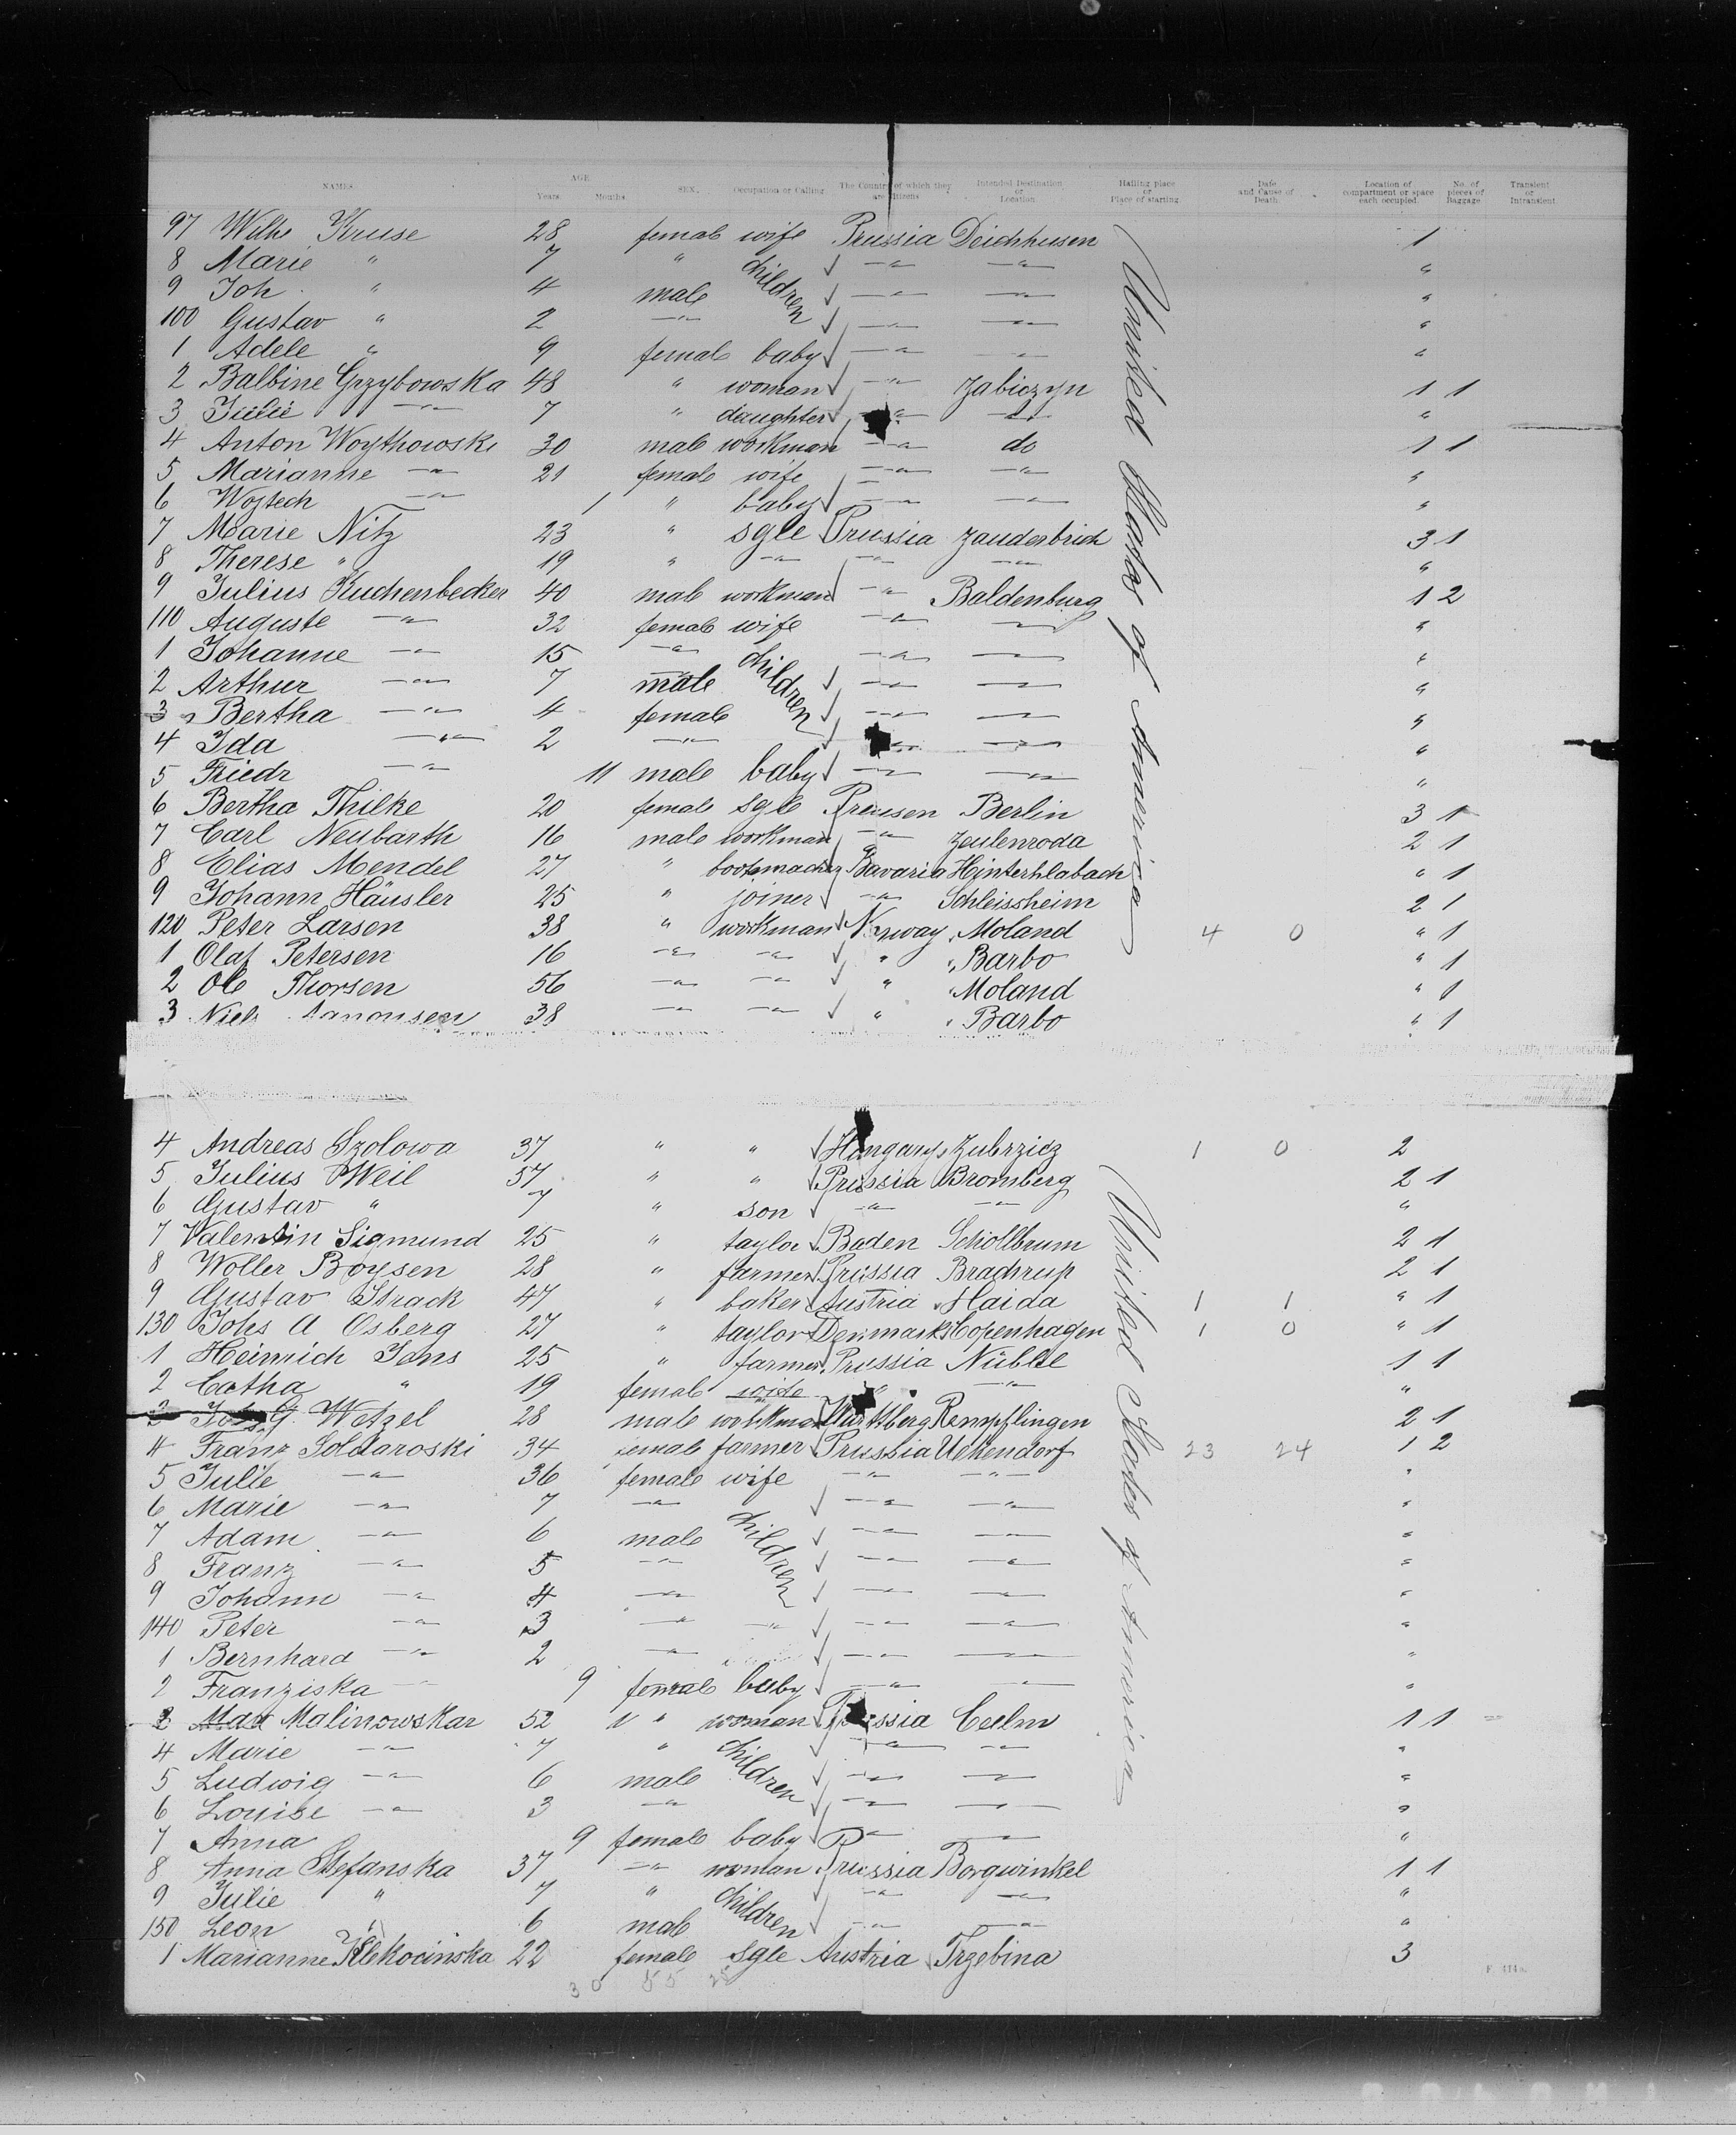 NAMES. AGE Years. Months. SEX. Occupation or Calling The Country of which they are Citizens Intended Destination or Location Hailing place or Place of starting. Date and Cause of Death. Location of compartment or space each occupied. No. of pieces of Baggage Transient or Intransient.
97 Wilhe Kruse 28 female wife Prussia Deichhusen 1
8 Marie " 7 " children — " — — " — "
9 Joh. " 4 male — " — — " — "
100 Gustav " 2 — " — — " — — " — "
1 Adele " 9 female baby — " — "
2 Balbine Grzybowska 48 " woman — " — Zabiczyn 1 1
3 Julie — " — 7 " daughter — " — "
4 Anton Woythowski 30 male workman — " — do 1 1
5 Marianne — " — 21 female wife — " — — " — "
6 Wojtech — " — 1 " baby — " — — " — "
7 Marie Nitz 23 " sgle Prussia Zanderbrich 3 1
8 Therese " 19 " — " — — " — — " — "
9 Julius Kuchenbecker 40 male workman — " — Baldenburg 1 2
110 Auguste — " — 32 female wife — " — — " — "
1 Johanne — " — 15 — " — children — " — — " — "
2 Arthur — " — 7 male — " — — " — "
3 Bertha — " — 4 female — " — — " — "
4 Ida — " — 2 — " — — " — — " — "
5 Friedr — " — 11 male baby — " — — " — "
6 Bertha Thilke 20 female sgle Preusen Berlin 3 1
7 Carl Neubarth 16 male workman — " — Zeulenroda 2 1
8 Elias Mendel 27 " bootmacher Bavaria Hinterhlabach " 1
9 Johann Häusler 25 " joiner — " — Schleissheim 2 1
120 Peter Larsen 38 " workman Norway Moland 4 0 " 1
1 Olaf Petersen 16 — " — — " — " Barbo " 1
2 Ole Thorsen 56 — " — — " — " Moland " 1
3 Niels 38 — " — — " — " Barbo " 1
United States of America
4 Andreas Szolowa 37 " " Hungary Zubrzicz 1 0 2
5 Julius Weil 57 " " Prussia Bromberg 2 1
6 Gustav " 7 " son — " — — " — "
7 Valentin Sigmund 25 " taylor Baden Schollbrum 2 1
8 Woller Boysen 28 " farmer Prussia Bradrup 2 1
9 Gustav Strack 47 " baker Austria Haida 1 1 " 1
130 Johs A Osberg 27 " taylor Denmark Copenhagen 1 0 " 1
1 Heinrich Jons 25 " farmer Prussia Nübbel 1 1
2 Catha " 19 female wife " — " — "
3 Joh. G. Wetzel 28 male workman Wurttberg Rempflingen 2 1
4 Franz Soldaroski 34 female farmer Prussia Uekendorf 23 24 1 2
5 Julie — " — 36 female wife — " — — " — "
6 Marie — " — 7 — " — children — " — — " — "
7 Adam — " — 6 male — " — — " — "
8 Franz — " — 5 — " — — " — — " — "
9 Johann — " — 4 — " — — " — — " — "
140 Peter — " — 3 — " — — " — — " — — " — "
1 Bernhard — " — 2 — " — — " — — " — "
2 Franziska — " — 9 female baby — " — — " — "
3 Malinowskar 52 " woman Prussia Culm 1 1
4 Marie — " — 7 " children — " — — " — "
5 Ludwig — " — 6 male — " — — " — "
6 Louise — " — 3 — " — — " — — " — "
7 Anna 9 female baby — " — — " — "
8 Anna Stefanska 37 — " — woman Prussia Borgwinkel 1 1
9 Julie " 7 " children — " — — " — "
150 Leon " 6 male — " — — " — "
1 Marianne Klekocinska 22 female sgle Austria Trzebina 3
30 55 25
United States of America